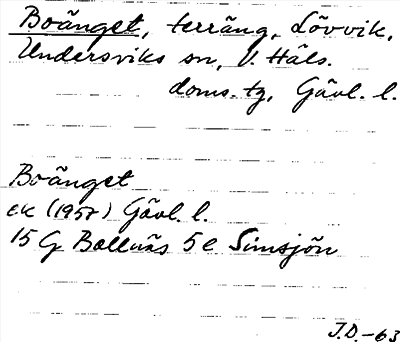 Boänget, terräng, Lövvik,
Undersviks sn, V. Häls.
doms. tg, Gävl. l.
Boänget
ek (1957) Gävl. l.
15 G Bollnäs 5 e Simsjön
J.D.-63